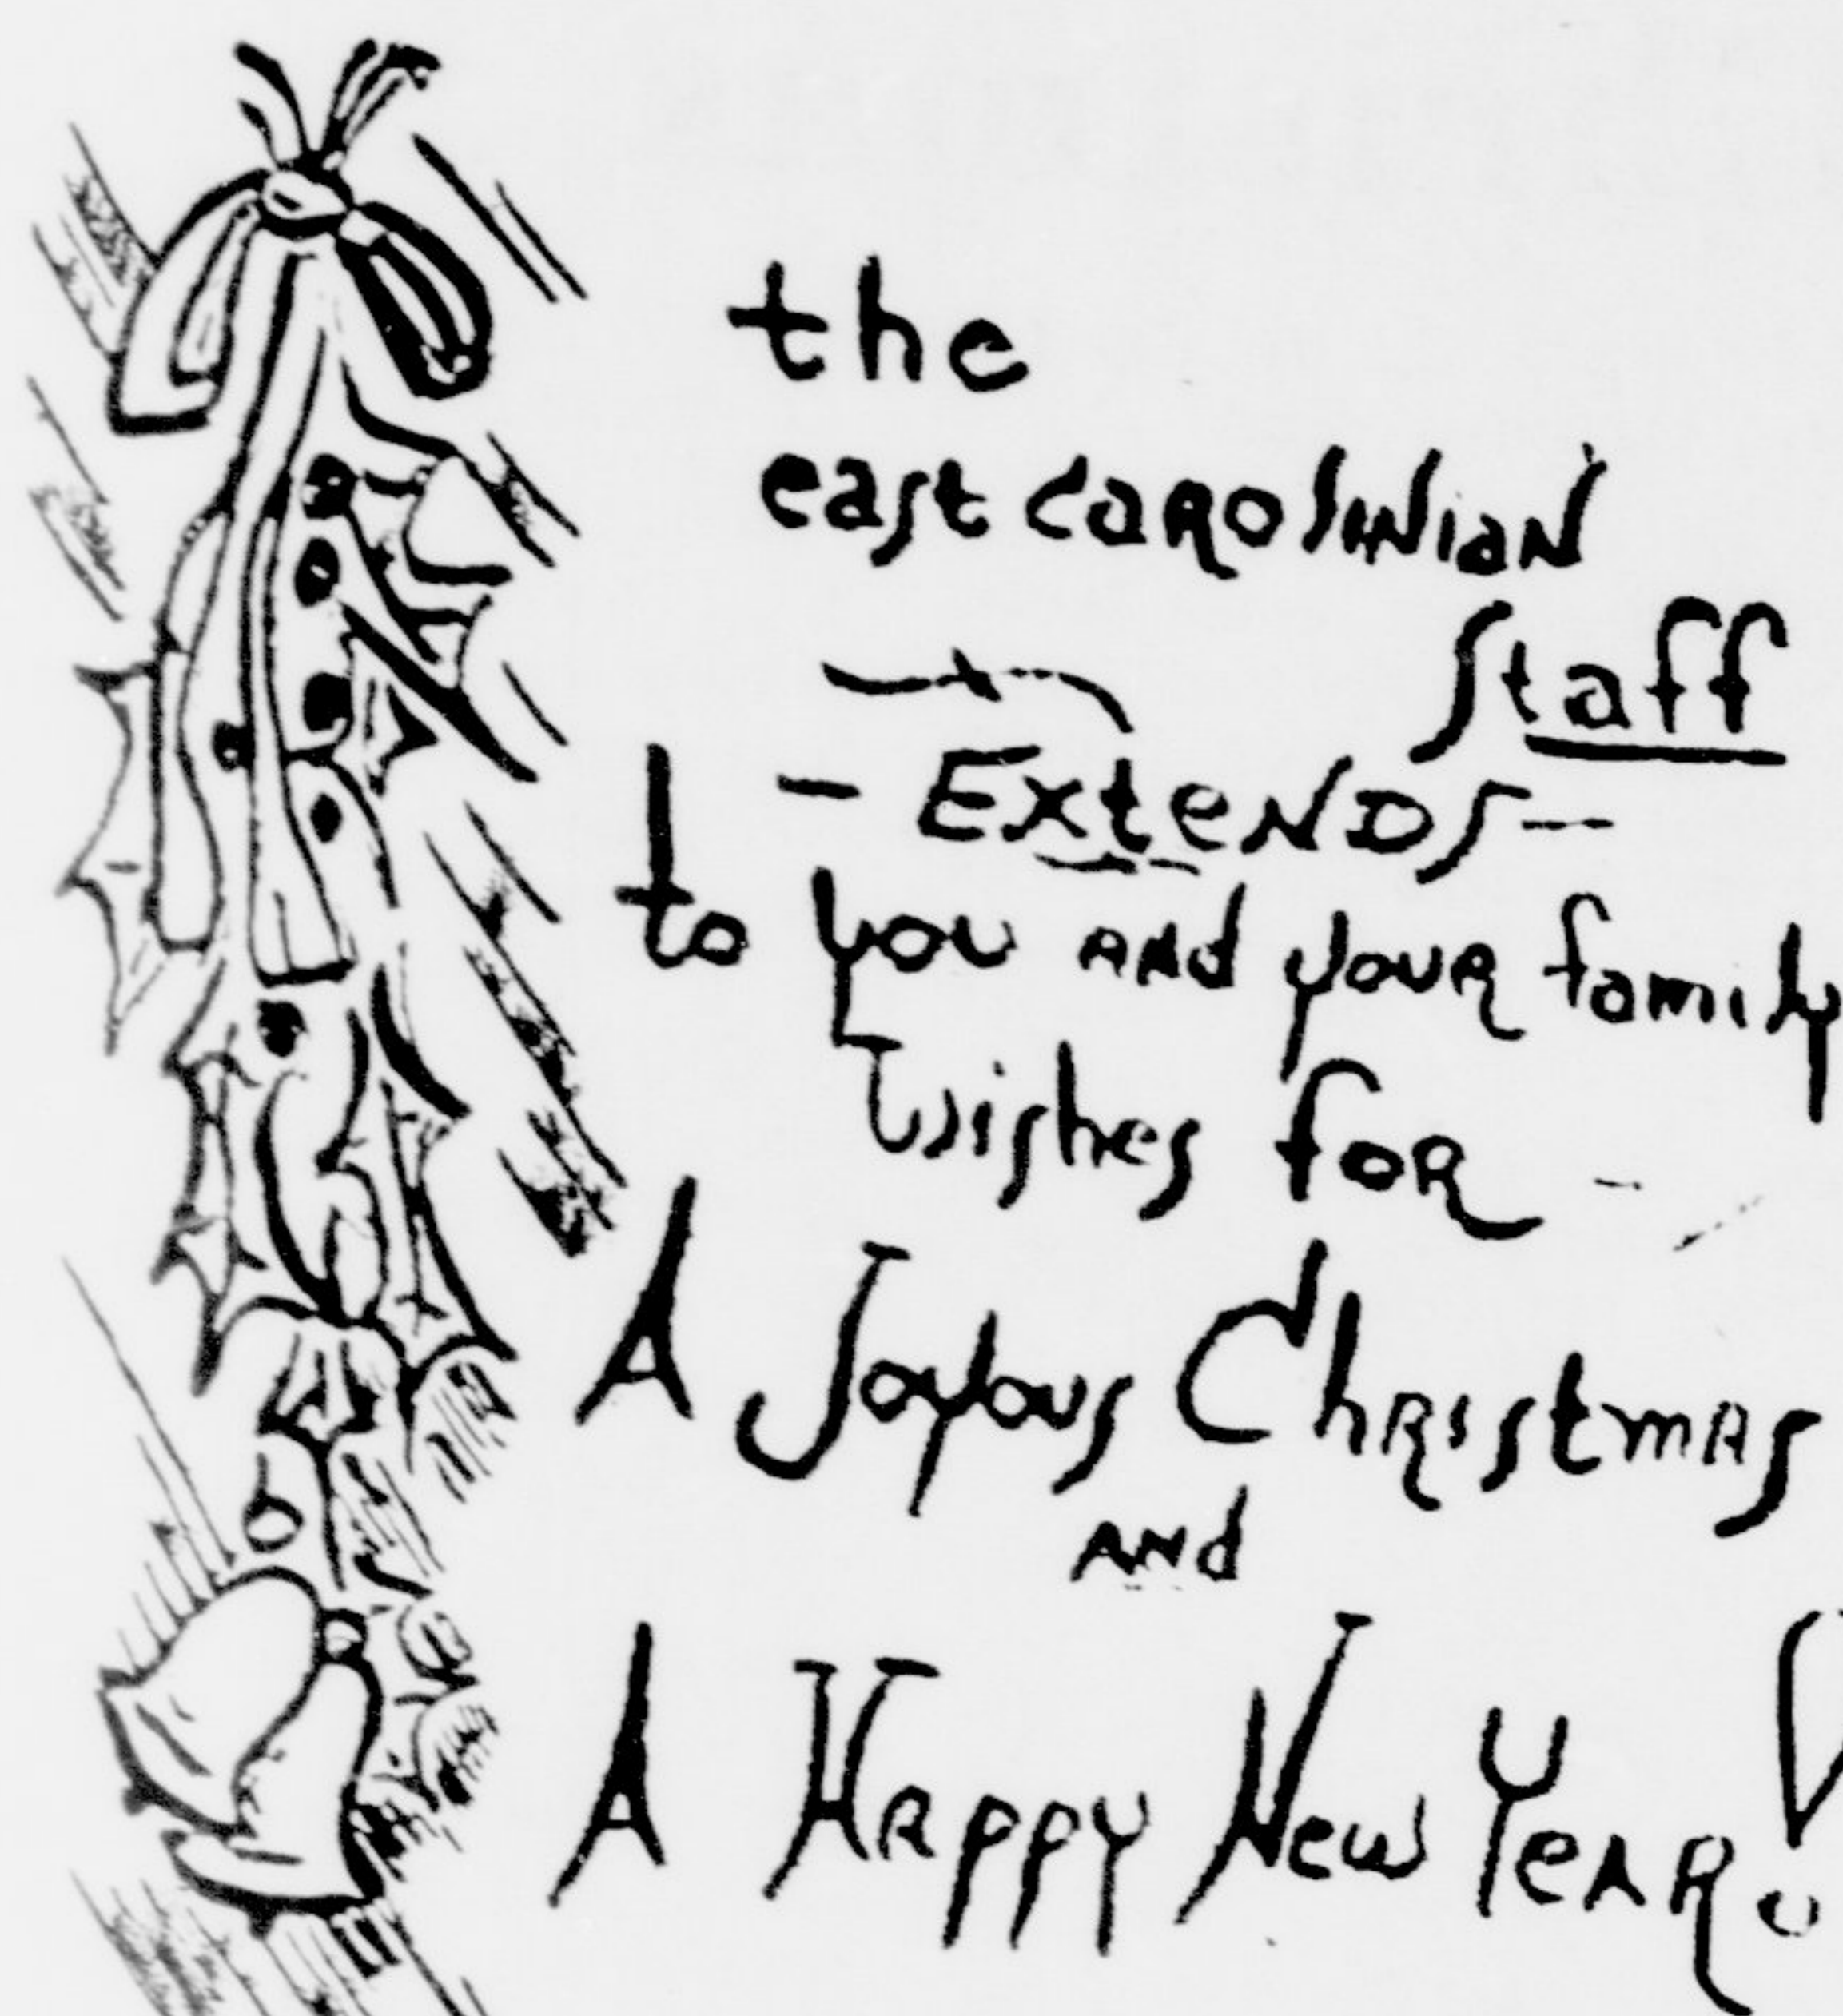 the
east carolinian
Staff
- Extends -
to you and your family
wishes for -
A Joyous Christmas
and
A Happy New Year!